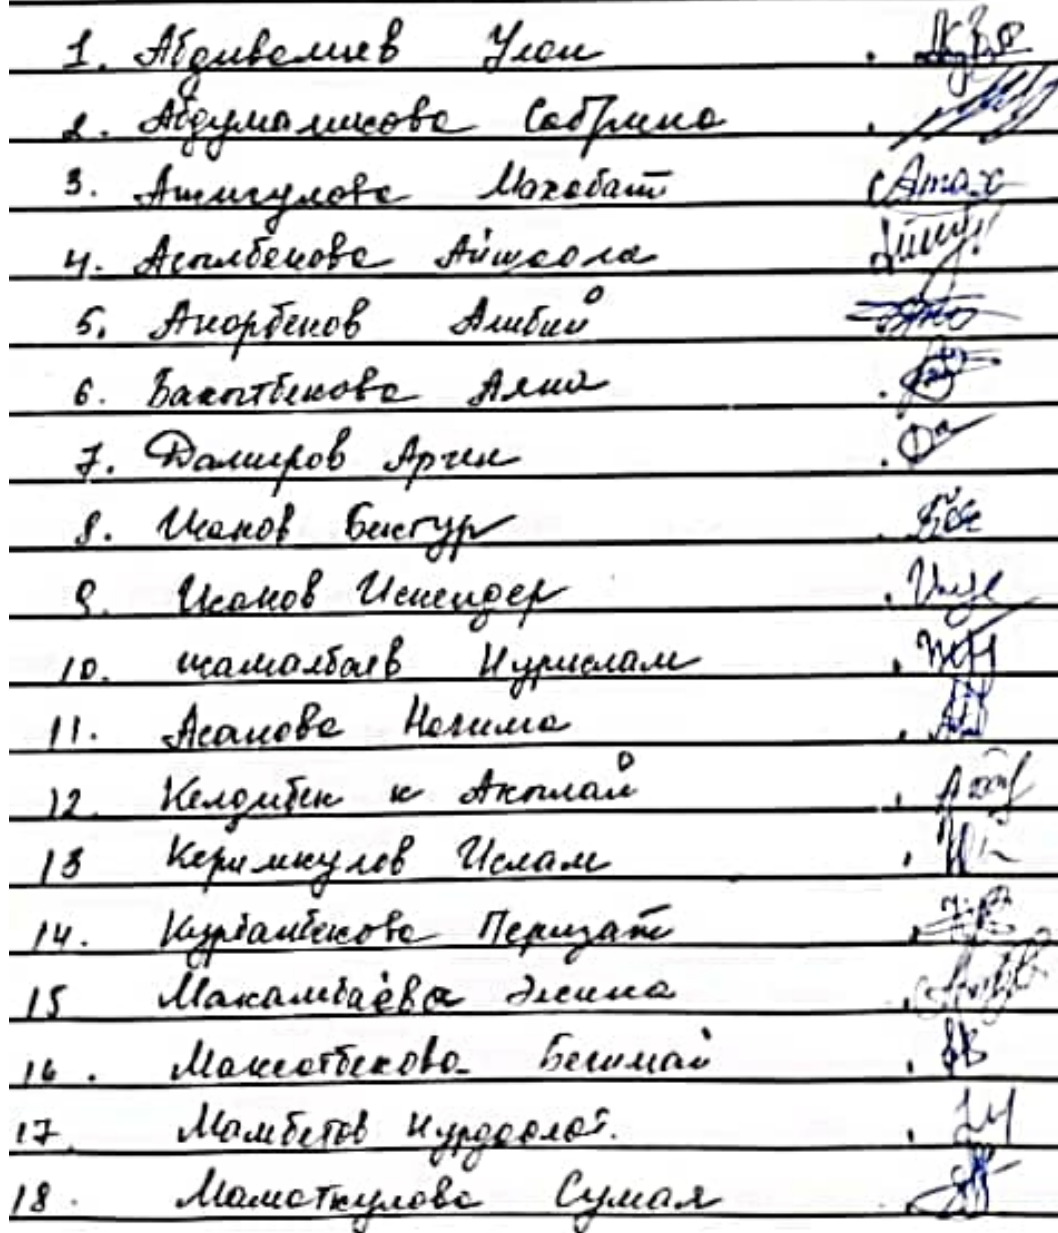 1. Абдивалиев Улан
2. Абдумаликова Сабрина
3. Ашигулова Махабат
4. Асылбекова Айжаола
5. Анарбеков Алибий
6. Бакытбекова Алия
7. Далиров Арген
8. Исанов Бектур
9. Исанов Искендер
10. жамалбаев Нурислам
11. Асанова Назима
12. Келдибек к Акылай
13 Керимкулов Ислам
14. Курбанбекова Перизат
15 Макамбаева Элина
16. Максатбекова Бегимай
17. Мамбетов Нурдоолот.
18. Маматкулова Сумая